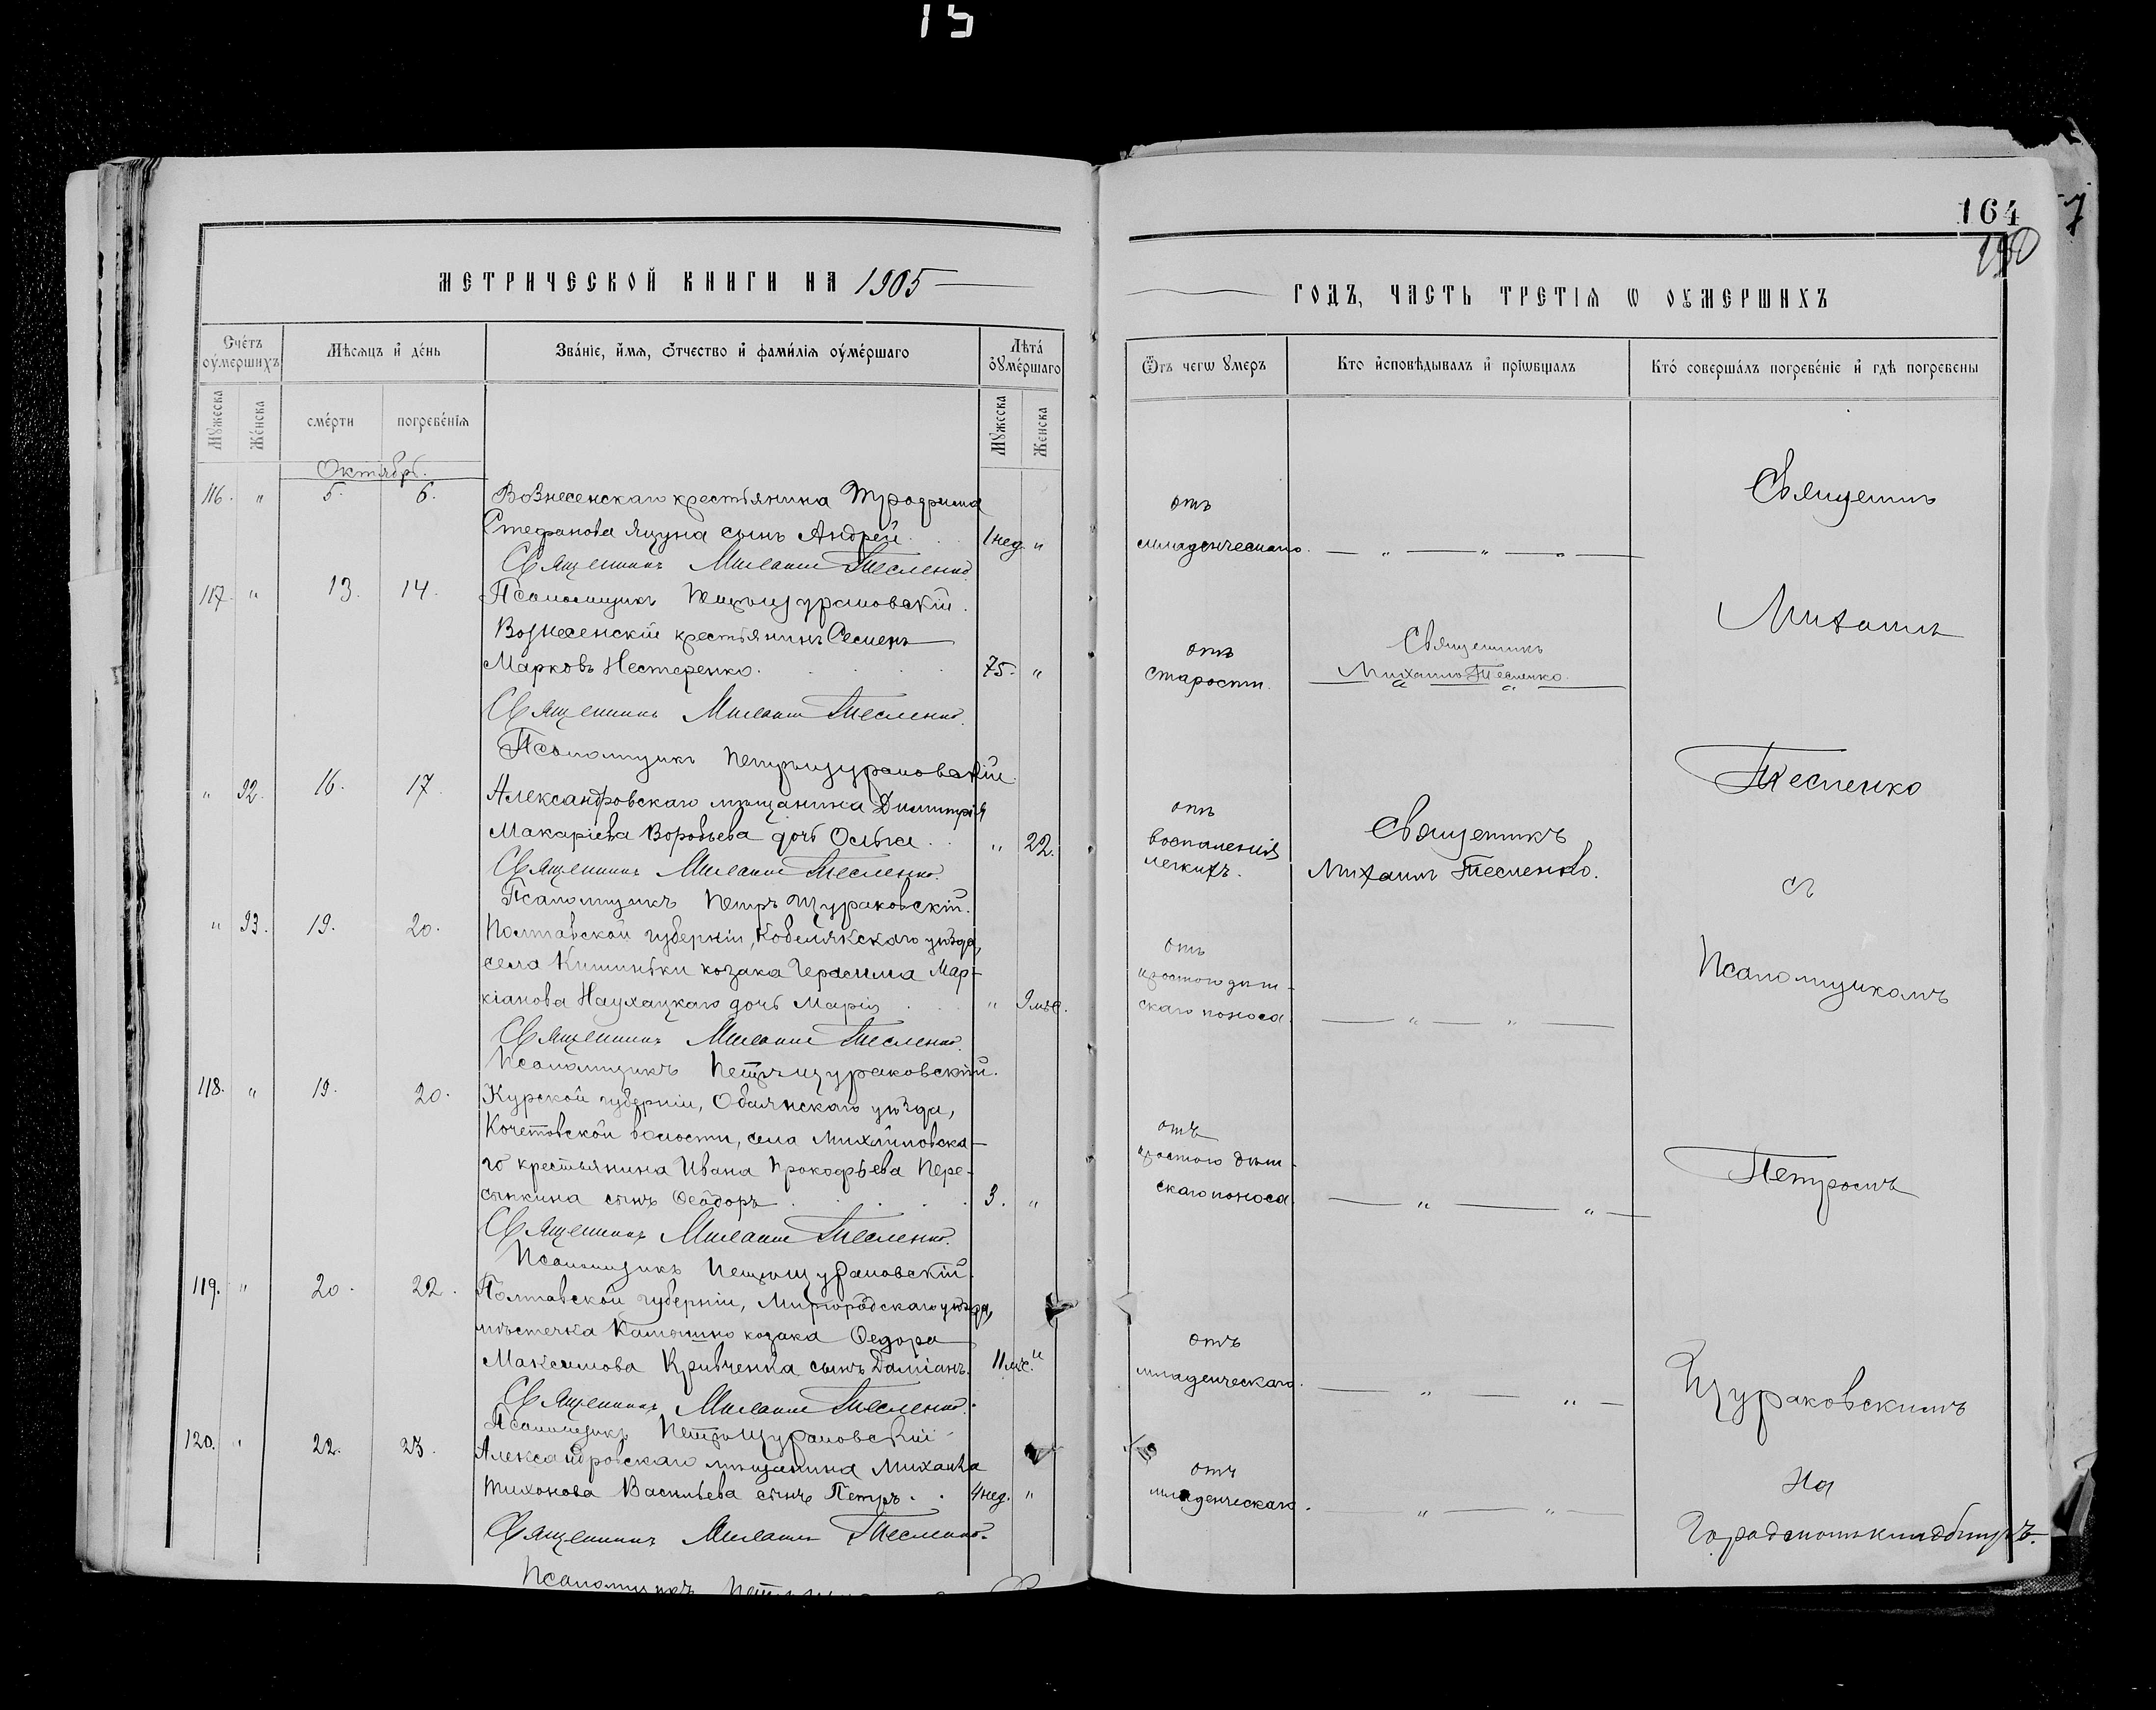 15
МЕТРИЧЕСКОЙ КНИГИ НА 1905
Счетъ оумершихъ
Мѣсяцъ и день
Званіе, имя, отчество и фамилія оумершаго
Лѣта оумершаго
Мужеска
Женска
смерти
погребенія
Мужеска
Женска
Октябрь.
116. " 5. 6. Вознесенскаго крестьянина Трофима
Стефанова Яцуна сынъ Андрей . . 1 нед. "
Священникъ Михаилъ Тесленко
117. " 13. 14. Псаломщикъ Петръ Щураковскій.
Вознесенскій крестьянинъ Семенъ
Марковъ Нестеренко . . . 75. "
Священникъ Михаилъ Тесленко.
Псаломщикъ Петръ Щураковскій.
" 92. 16. 17. Александровскаго мѣщанина Димитрія
Макаріева Воробьева дочь Ольга . . " 22.
Священникъ Михаилъ Тесленко.
Псаломщикъ Петръ Щураковскій.
" 93. 19. 20. Полтавской губерніи, Кобелякскаго уѣзда,
села Кишиньки козака Герасима Мар-
кіанова Наухацкаго дочь Марія . . " 9 мѣс.
Священникъ Михаилъ Тесленко.
Псаломщикъ Петръ Щураковскій.
118. " 19. 20. Курской губерніи, Обаянскаго уѣзда,
Кочетовской волости, села Михайловска-
го крестьянина Ивана Прокофьева Пере-
сыпкина сынъ Ѳеодоръ . . . . 3. "
Священникъ Михаилъ Тесленко.
Псаломщикъ Петръ Щураковскій.
119. " 20. 22. Полтавской губерніи, Миргородскаго уѣзда,
мѣстечка Камышно козака Ѳедора
Максимова Кривченка сынъ Даміанъ. 11 мѣс. "
Священникъ Михаилъ Тесленко.
Псаломщикъ Петръ Щураковскій
120. " 22. 23. Александровскаго мѣщанина Михаила
Тихонова Васильева сынъ Петръ . . 4 нед. "
Священникъ Михаилъ Тесленко.
Псаломщикъ
164
ГОДЪ, ЧАСТЬ ТРЕТІЯ Ѡ ОУМЕРШИХЪ
Ѿтъ чегѡ умеръ
Кто исповѣдывалъ и пріѡбщалъ
Кто совершалъ погребеніе и гдѣ погребены
отъ
младенческаго. — " — " — " —
отъ
старости.
Священникъ
Михаилъ Тесленко.
отъ
воспаленія
легкихъ.
Священникъ
Михаилъ Тесленко.
отъ
простого дѣт-
скаго поноса. — " — " —
отъ
простого дѣт-
скаго поноса. — " — " —
отъ
младенческаго. — " — " —
отъ
младенческаго. — " — " —
Священникъ
Михаилъ
Тесленко
съ
Псаломщикомъ
Петромъ
Щураковскимъ
на
Городскомъ кладбищѣ.